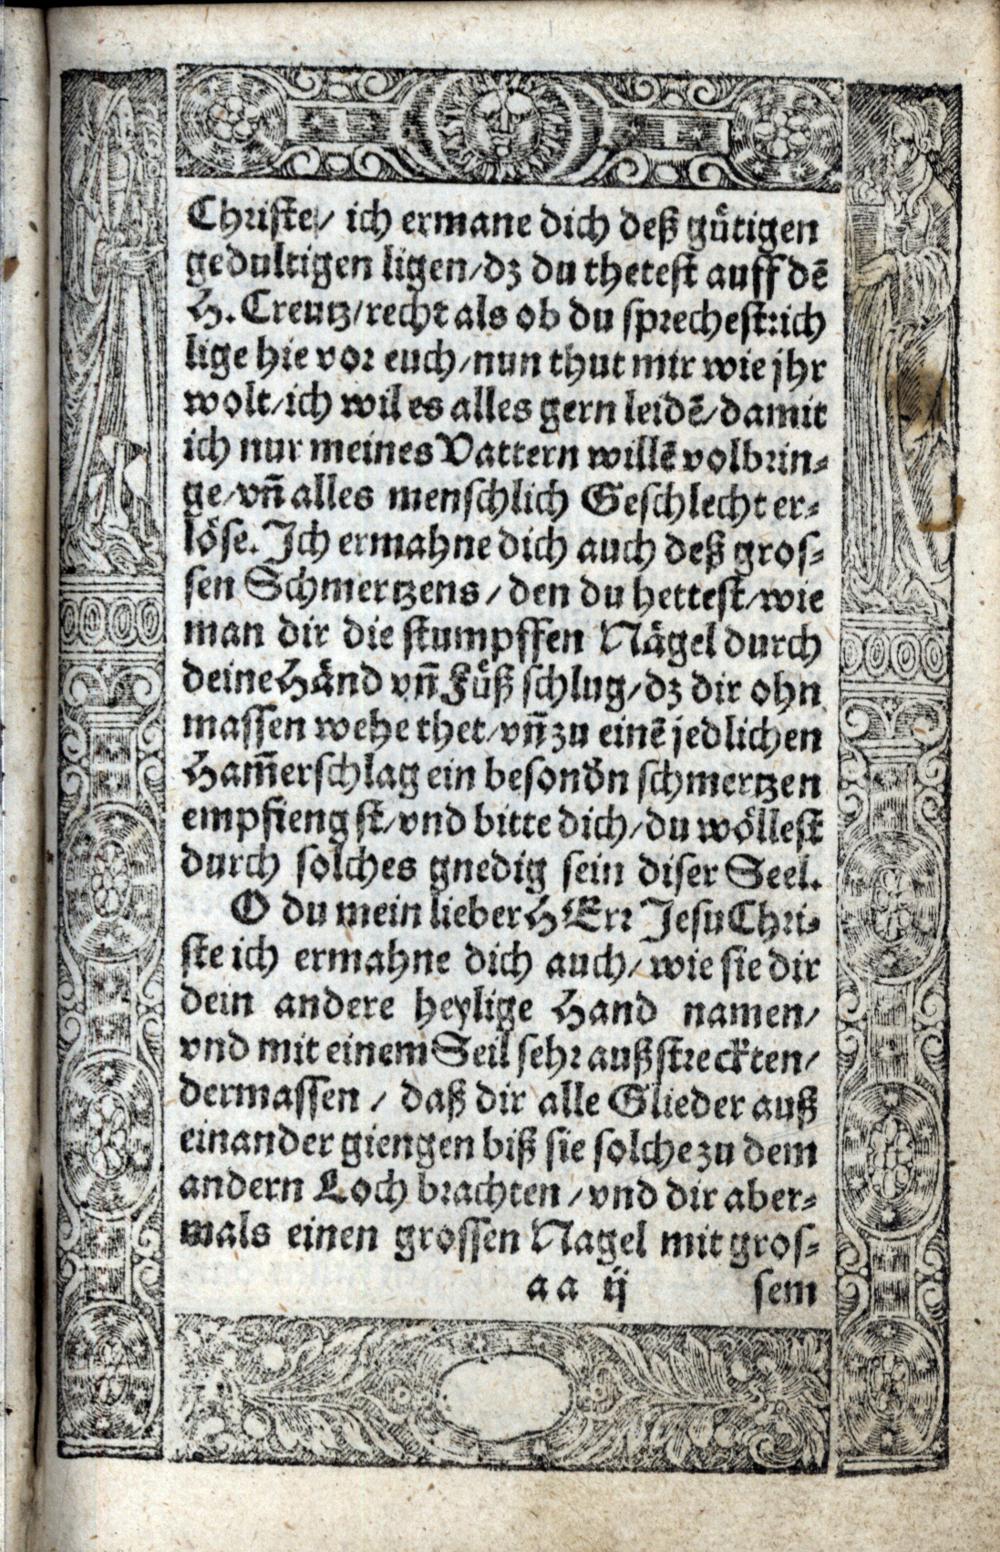 Christe / ich ermane dich deß guͤtigen
gedultigen ligen/dz du thetest auff dē
H. Creutz/recht als ob du sprechest:ich
lige hie vor euch/nun thut mir wie jhr
wolt/ich wil es alles gern leidē/damit
ich nur meines Vattern willē volbrin⸗
ge/vn̄ alles menschlich Geschlecht er⸗
loͤse. Ich ermahne dich auch deß gros⸗
sen Schmertzens / den du hettest/wie
man dir die stumpffen Naͤgel durch
deine Haͤnd vn̄ Fuͤß schlug/dz dir ohn
massen wehe thet/vn̄ zu einē jedlichen
Ham̄erschlag ein besondn̄ schmertzen
empfiengst/vnd bitte dich/du woͤllest
durch solches gnedig sein diser Seel.
O du mein lieber HErr Jesu Chri⸗
ste ich ermahne dich auch/wie sie dir
dein andere heylige Hand namen/
vnd mit einem Seil sehr außstreckten/
dermassen / daß dir alle Glieder auß
einander giengen biß sie solche zu dem
andern Loch brachten /vnd dir aber⸗
mals einen grossen Nagel mit gros⸗
aa ij sem